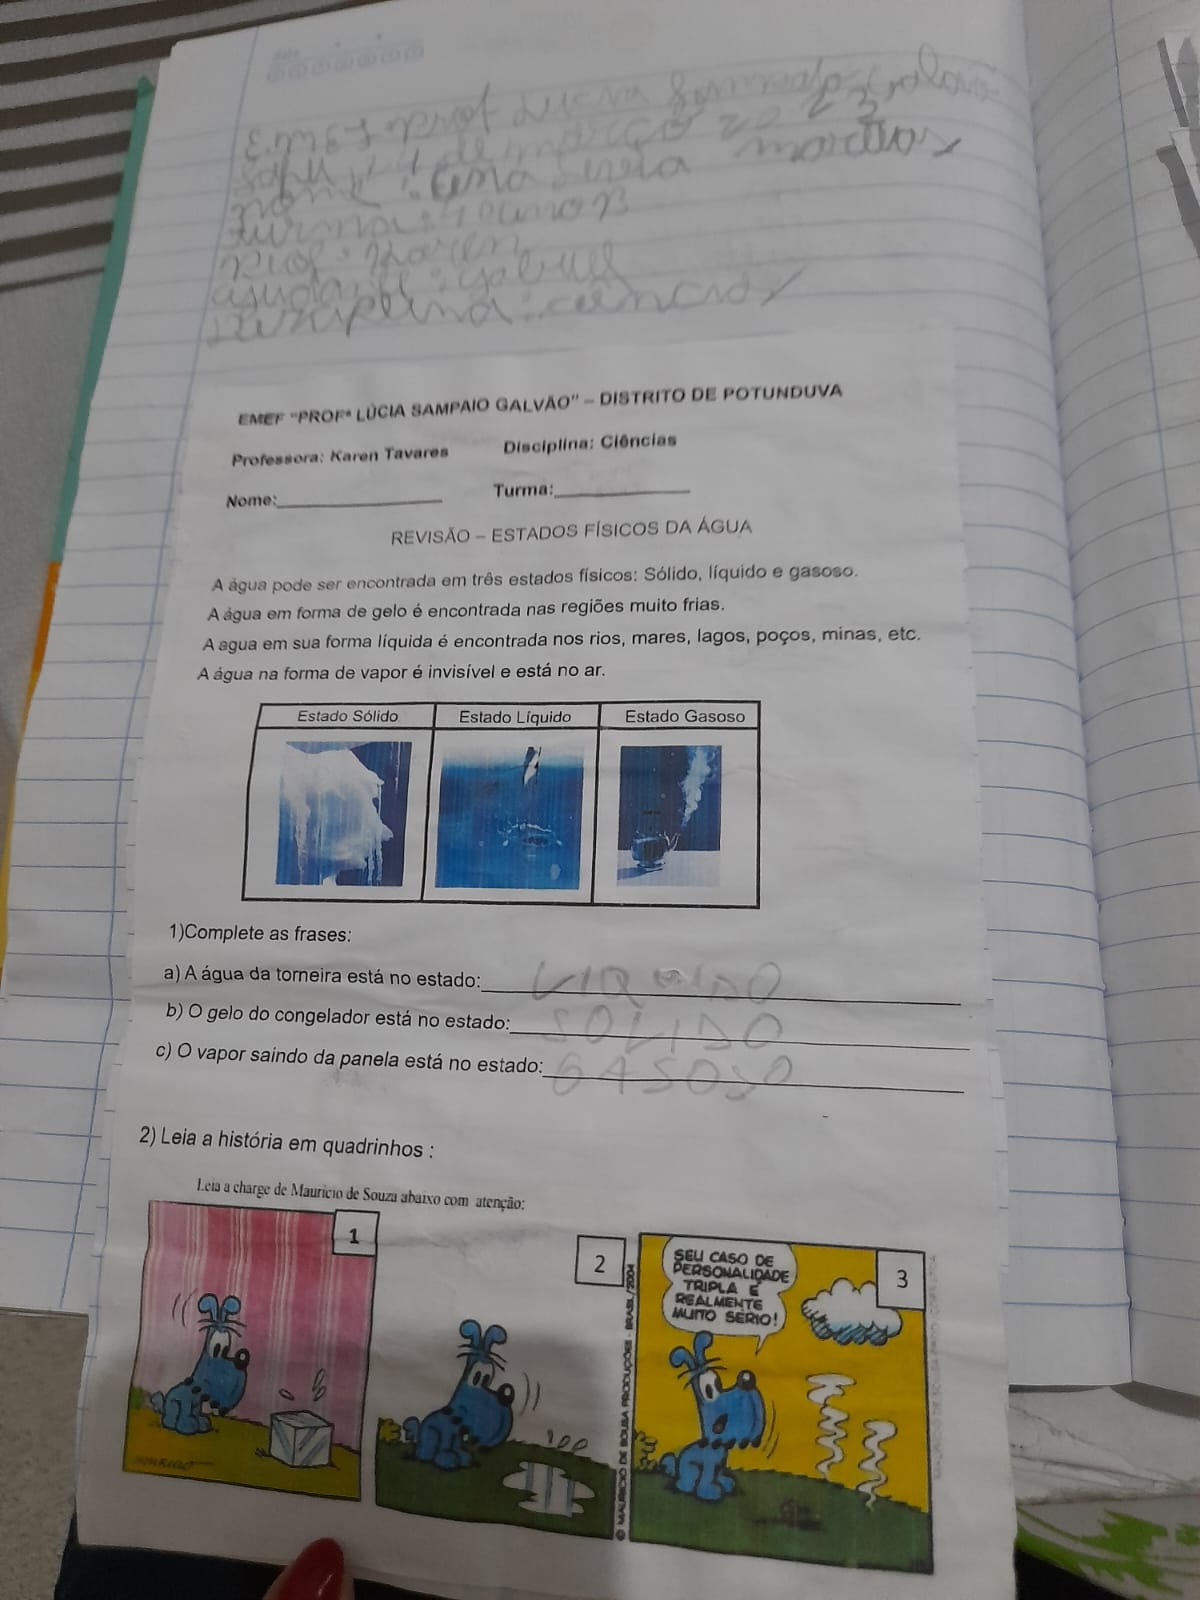 data
E.M.E.F prof Lucia Galvão
14 de março 2023
nome: Ana martins
turma: 4º ano B
prof: Karen
ajudante: gabriel
Disciplina: ciências
EMEF "PROFª LÚCIA SAMPAIO GALVÃO" – DISTRITO DE POTUNDUVA
Professora: Karen Tavares Disciplina: Ciências
Nome:_______________ Turma:_______________
REVISÃO – ESTADOS FÍSICOS DA ÁGUA
A água pode ser encontrada em três estados físicos: Sólido, líquido e gasoso.
A água em forma de gelo é encontrada nas regiões muito frias.
A agua em sua forma líquida é encontrada nos rios, mares, lagos, poços, minas, etc.
A água na forma de vapor é invisível e está no ar.
Estado Sólido Estado Líquido Estado Gasoso
1)Complete as frases:
a) A água da torneira está no estado: LIQUIDO
b) O gelo do congelador está no estado: SOLIDO
c) O vapor saindo da panela está no estado: GASOSO
2) Leia a história em quadrinhos :
Leia a charge de Mauricio de Souza abaixo com atenção:
1
2
© MAURICIO DE SOUSA PRODUÇÕES - BRASIL/2004
3
SEU CASO DE
PERSONALIDADE
TRIPLA É
REALMENTE
MUITO SÉRIO!